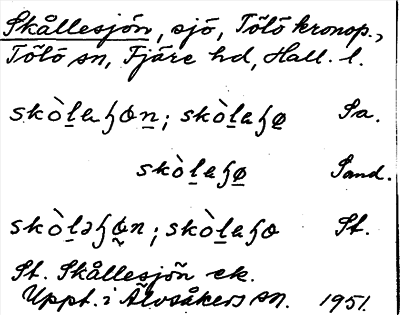 Skållesjön, sjö, Tölö kronop.,
Tölö sn, Fjäre hd, Hall. l.
skòlaɧøn; skòlaɧø Sa.
skòlaɧø Sand.
skòləɧøn; skòlaɧø St.
St. Skållesjön ek.
Uppt. i Älvsåkers sn. 1951.